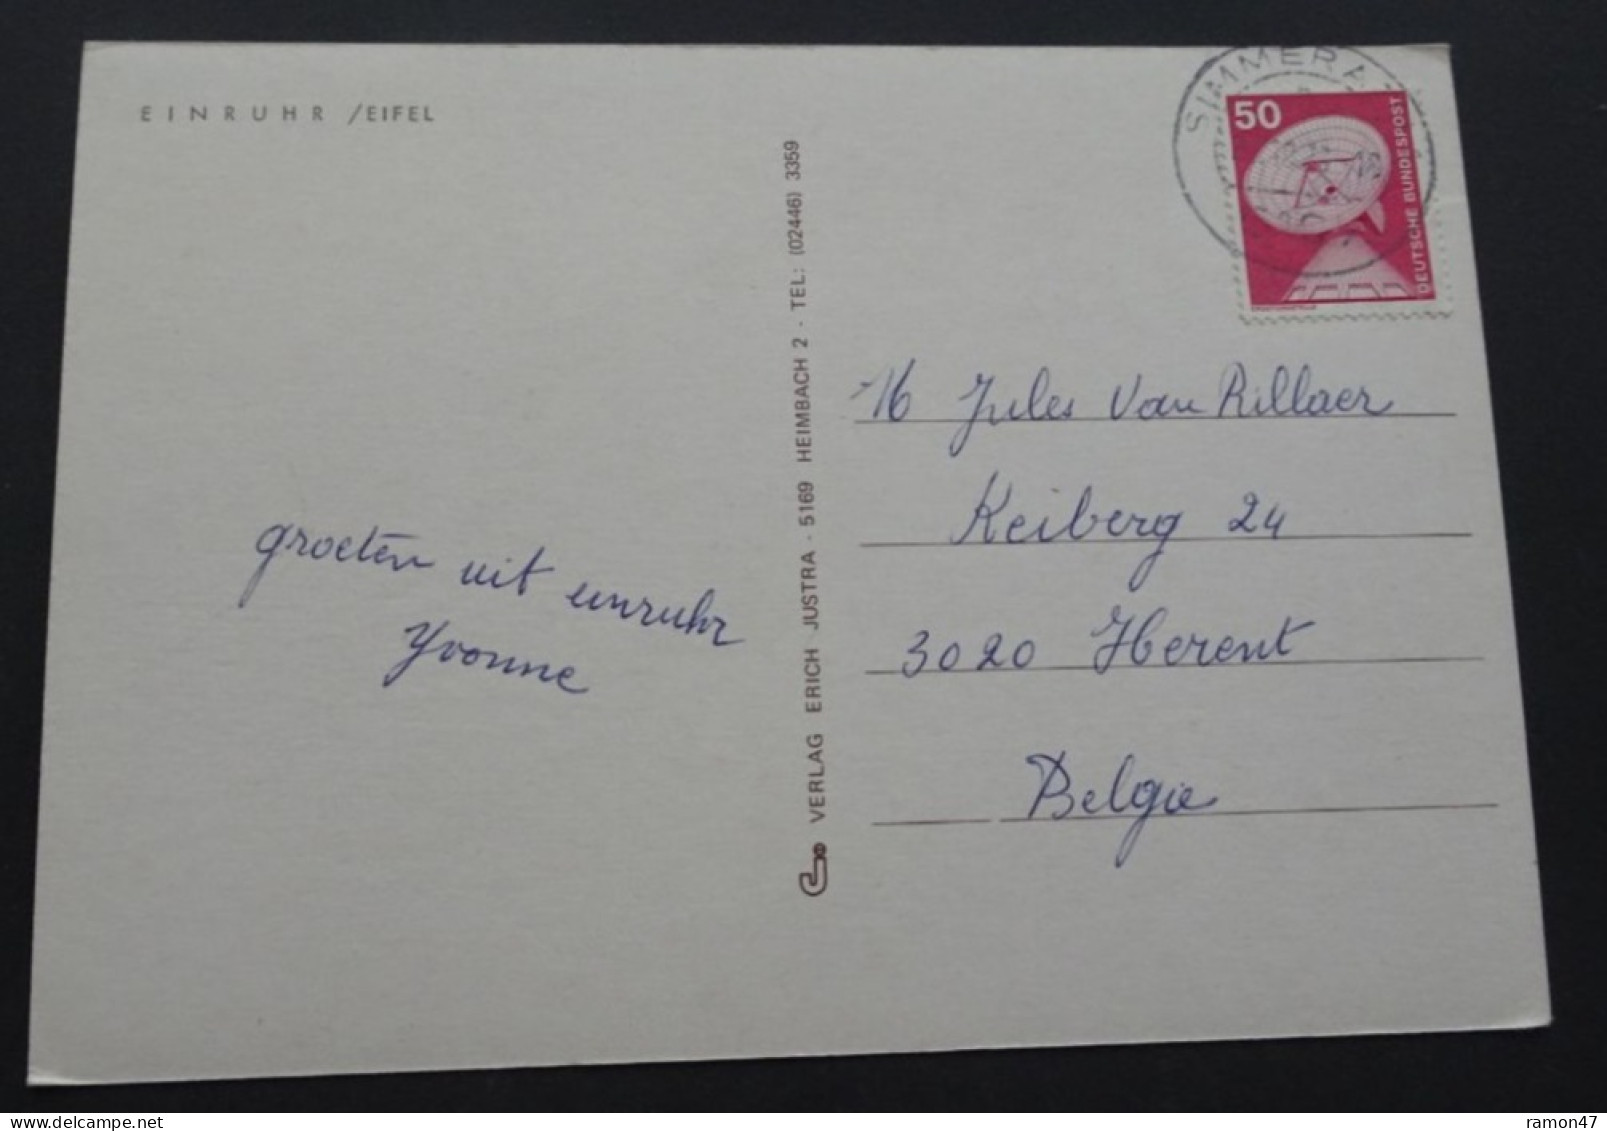 EINRUHR /EIFEL
groeten uit einruhr
Yvonne
VERLAG ERICH JUSTRA · 5169 HEIMBACH 2 · TEL: (02446) 3359
SIMMERA
50
DEUTSCHE BUNDESPOST
Jules Van Rillaer
Keiberg 24
3020 Herent
Belgie
ramon47